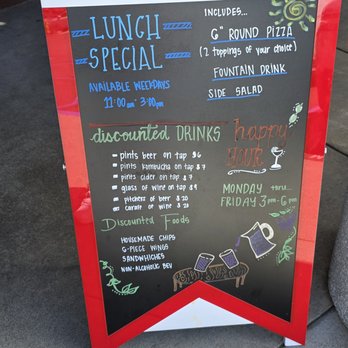 LUNCH
SPECIAL
AVAILABLE WEEKDAYS
11:00 am - 3:00 pm
INCLUDES...
6" ROUND PIZZA
(2 toppings of your choice)
FOUNTAIN DRINK
SIDE SALAD
discounted DRINKS
pints beer on tap $6
pints kombucha on tap $7
pints cider on tap $7
glass of wine on tap $9
pitchers of beer $20
carafe of wine $20
happy
HOUR
MONDAY thru...
FRIDAY 3pm-6pm
Discounted Foods
HOUSEMADE CHIPS
6-PIECE WINGS
SANDWHICHES
NON-ALCOHOLIC BEV